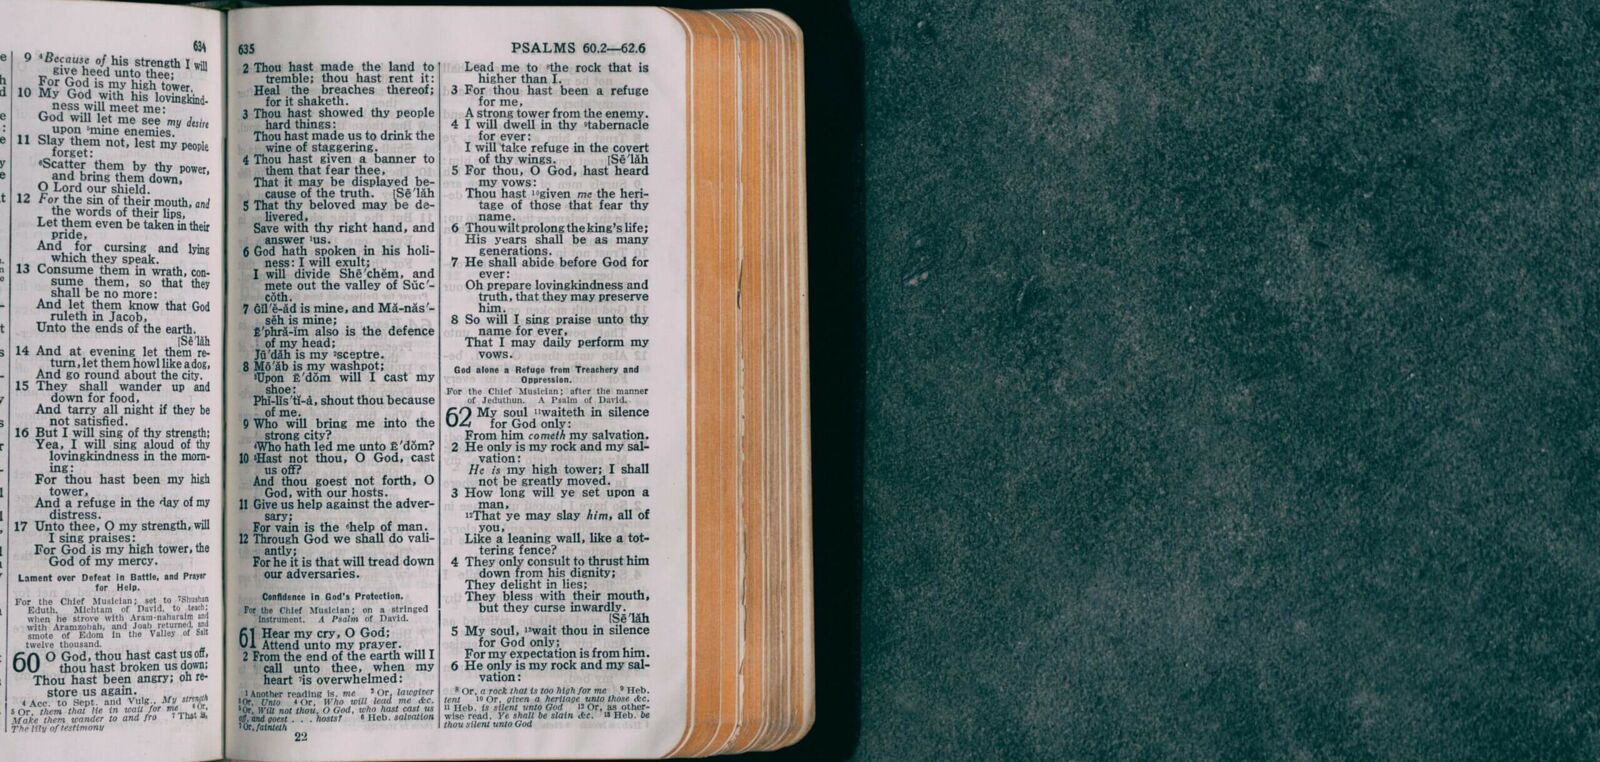 634
9 ⁴Because of his strength I will
give heed unto thee;
For God is my high tower.
10 My God with his lovingkind-
ness will meet me:
God will let me see my desire
upon ⁵mine enemies.
11 Slay them not, lest my people
forget:
⁶Scatter them by thy power,
and bring them down,
O Lord our shield.
12 For the sin of their mouth, and
the words of their lips,
Let them even be taken in their
pride,
And for cursing and lying
which they speak.
13 Consume them in wrath, con-
sume them, so that they
shall be no more:
And let them know that God
ruleth in Jacob,
Unto the ends of the earth.
[Sē´läh
14 And at evening let them re-
turn, let them howl like a dog,
And go round about the city.
15 They shall wander up and
down for food,
And tarry all night if they be
not satisfied.
16 But I will sing of thy strength;
Yea, I will sing aloud of thy
lovingkindness in the morn-
ing:
For thou hast been my high
tower,
And a refuge in the day of my
distress.
17 Unto thee, O my strength, will
I sing praises:
For God is my high tower, the
God of my mercy.
Lament over Defeat in Battle, and Prayer
for Help.
For the Chief Musician; set to ⁷Shushan
Eduth. Michtam of David, to teach;
when he strove with Aram-naharaim and
with Aramzobah, and Joab returned, and
smote of Edom in the Valley of Salt
twelve thousand.
60 O God, thou hast cast us off,
thou hast broken us down;
Thou hast been angry; oh re-
store us again.
4 Acc. to Sept. and Vulg., My strength
5 Or, them that lie in wait for me 6 Or,
Make them wander to and fro 7 That is,
The lily of testimony
635
2 Thou hast made the land to
tremble; thou hast rent it:
Heal the breaches thereof;
for it shaketh.
3 Thou hast showed thy people
hard things:
Thou hast made us to drink the
wine of staggering.
4 Thou hast given a banner to
them that fear thee,
That it may be displayed be-
cause of the truth. [Sē´läh
5 That thy beloved may be de-
livered,
Save with thy right hand, and
answer ¹us.
6 God hath spoken in his holi-
ness: I will exult;
I will divide Shē´chĕm, and
mete out the valley of Sŭc´-
cŏth.
7 Gĭl´ē-ăd is mine, and Mă-năs´-
sĕh is mine;
Ē´phră-ĭm also is the defence
of my head;
Jū´dăh is my ²sceptre.
8 Mō´ăb is my washpot;
³Upon Ē´dŏm will I cast my
shoe:
Phĭ-lĭs´tĭ-ȧ, shout thou because
of me.
9 Who will bring me into the
strong city?
⁴Who hath led me unto Ē´dŏm?
10 ⁵Hast not thou, O God, cast
us off?
And thou goest not forth, O
God, with our hosts.
11 Give us help against the adver-
sary;
For vain is the ⁶help of man.
12 Through God we shall do vali-
antly;
For he it is that will tread down
our adversaries.
Confidence in God's Protection.
For the Chief Musician; on a stringed
instrument. A Psalm of David.
61 Hear my cry, O God;
Attend unto my prayer.
2 From the end of the earth will I
call unto thee, when my
heart ⁷is overwhelmed:
1 Another reading is, me 2 Or, lawgiver
3 Or, Unto 4 Or, Who will lead me &c.
5 Or, Wilt not thou, O God, who hast cast us
off, and goest . . . hosts? 6 Heb. salvation
7 Or, fainteth
22
PSALMS 60.2—62.6
Lead me to ⁸the rock that is
higher than I.
3 For thou hast been a refuge
for me,
A strong tower from the enemy.
4 I will dwell in thy ⁹tabernacle
for ever:
I will take refuge in the covert
of thy wings. [Sē´läh
5 For thou, O God, hast heard
my vows:
Thou hast ¹⁰given me the heri-
tage of those that fear thy
name.
6 Thou wilt prolong the king's life;
His years shall be as many
generations.
7 He shall abide before God for
ever:
Oh prepare lovingkindness and
truth, that they may preserve
him.
8 So will I sing praise unto thy
name for ever,
That I may daily perform my
vows.
God alone a Refuge from Treachery and
Oppression.
For the Chief Musician; after the manner
of Jeduthun. A Psalm of David.
62 My soul ¹¹waiteth in silence
for God only:
From him cometh my salvation.
2 He only is my rock and my sal-
vation:
He is my high tower; I shall
not be greatly moved.
3 How long will ye set upon a
man,
¹²That ye may slay him, all of
you,
Like a leaning wall, like a tot-
tering fence?
4 They only consult to thrust him
down from his dignity;
They delight in lies;
They bless with their mouth,
but they curse inwardly.
[Sē´läh
5 My soul, ¹³wait thou in silence
for God only;
For my expectation is from him.
6 He only is my rock and my sal-
vation:
8 Or, a rock that is too high for me 9 Heb.
tent 10 Or, given a heritage unto those &c.
11 Heb. is silent unto God 12 Or, as other-
wise read, Ye shall be slain &c. 13 Heb. be
thou silent unto God